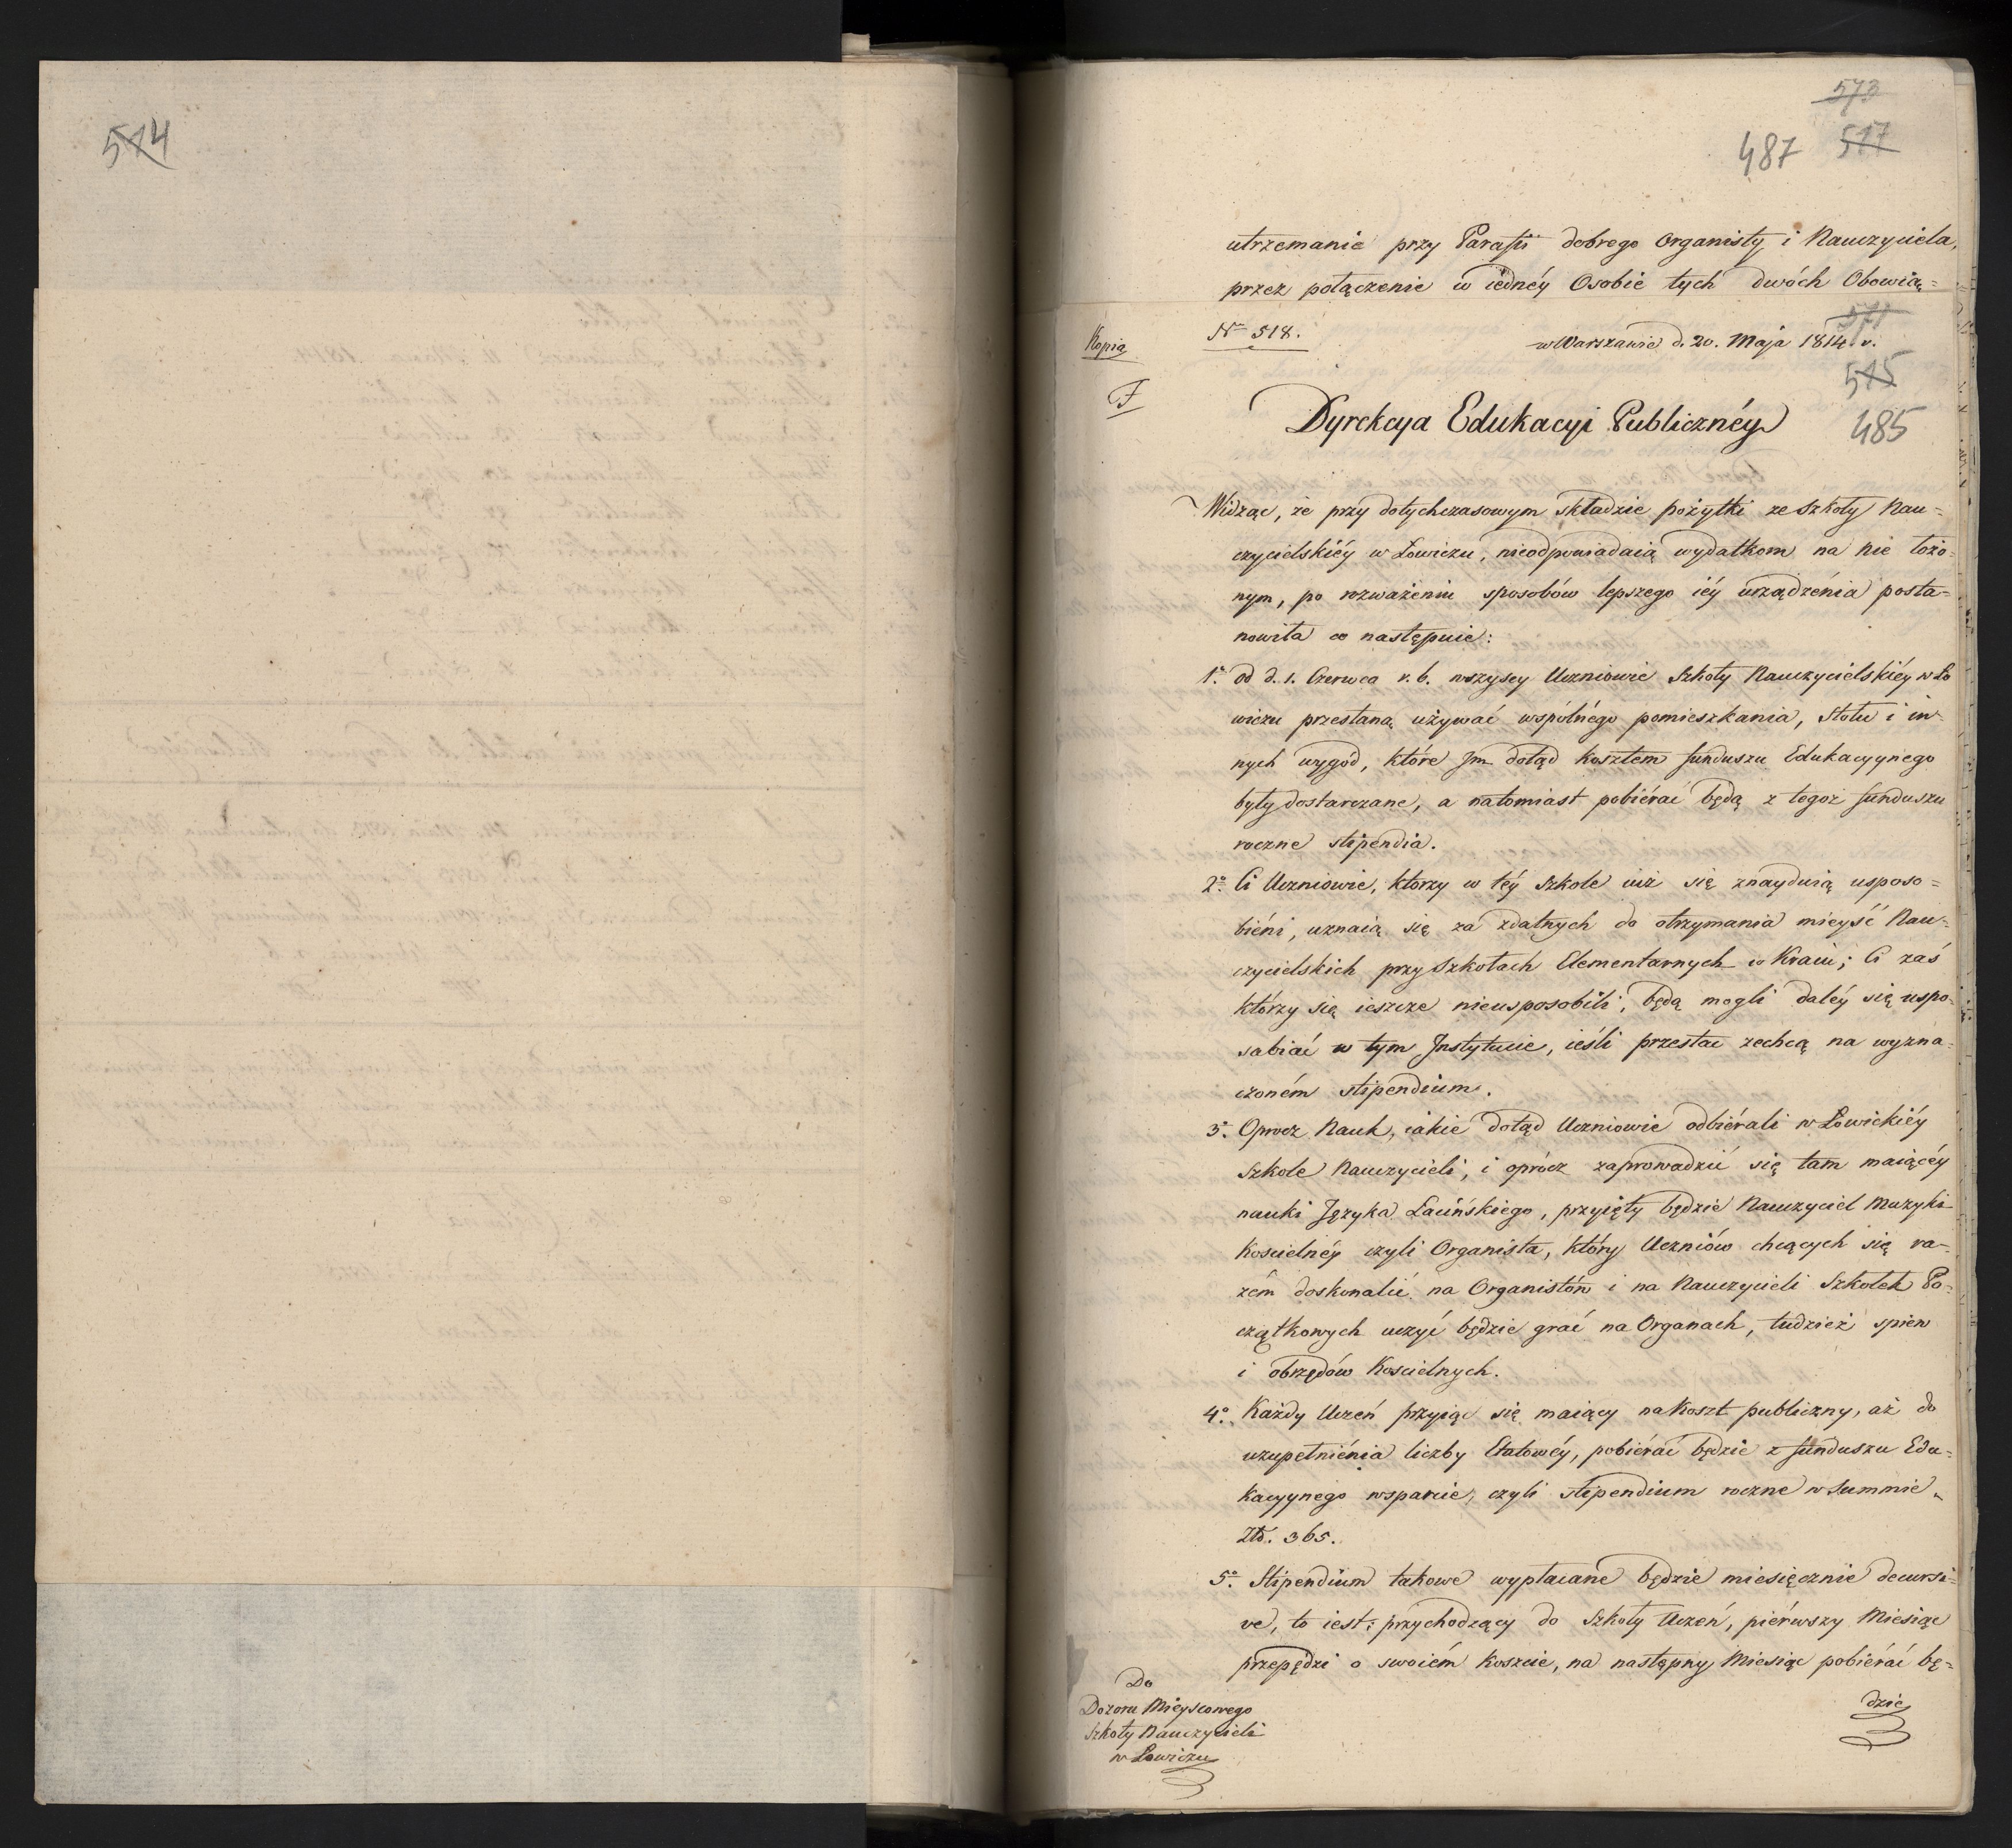 514
573
487 517
utrzemanie przy Parafii dobrego Organisty i Nauczyciela,
przez połączenie w iednéy Osobie tych dwóch Obowią=
571
Kopia
No 518.
w Warszawie d. 20. Maja 1814. r.
515
485
F
Dyrekcya Edukacyi Publicznéy
Widząc, że przy dotychczasowym składzie pożytki ze Szkoły Nau=
czycielskiéy w Łowiczu, nieodpowiadaią wydatkom na nie łożo=
nym, po rozważeniu sposobów lepszego iéy urządzénia posta=
nowiła co następuie:
1o. od d. 1. Czerwca r. b. wszyscy Uczniowie Szkoły Nauczycielskiéy w Ło
wiczu przestaną używać wspólnégo pomieszkania, Stołu i in=
nych wygód, które Jm dotąd kosztem funduszu Edukacyynego
były dostarczane, a natomiast pobiérać będą z tegoż funduszu
roczne stipendia.
2o. Ci Uczniowie, ktorzy w téy Szkole iuż się znayduią usposo=
biéni, uznaią się za zdatnych do otrzymania mieysć Nau=
czycielskich przy Szkołach Elementarnych w Kraiu; Ci zaś
którzy się ieszcze nieusposobili, będą mogli daléy się uspo=
sabiać w tym Jnstytucie, ieśli przestać zechcą na wyzna=
czoném stipendium.
3o. Oprocz Nauk, iakie dotąd Uczniowie odbiérali w Łowickiéy
Szkole Nauczycieli, i oprócz zaprowadzić się tam maiącéy
nauki Języka Łacińskiego, przyięty będzie Nauczyciel Muzyki
Koscielnéy czyli Organista, który Uczniów chcących się ra=
zém doskonalić na Organistów i na Nauczycieli Szkołek Po=
czątkowych uczyć będzie grać na Organach, tudzież spiew
i obrzędów Koscielnych.
4o. Każdy Uczeń przyiąć się maiący na Koszt publiczny, aż do
uzupełniénia liczby Etatowéy, pobiérać będzie z funduszu Edu=
kacyynego wsparcie, czyli stipendium roczne w Summie
Złt. 365.
5o. Stipendium takowe wypłacane będzie miesięcznie decursi=
ve, to iest: przychodzący do Szkoły Uczeń, piérwszy Miesiąc
przepędzi o swoiém Koszcie, na następny Miesiąc pobiérać bę=
dzie
Do
Dozoru Mieyscowego
Szkoły Nauczycieli
w Łowiczu